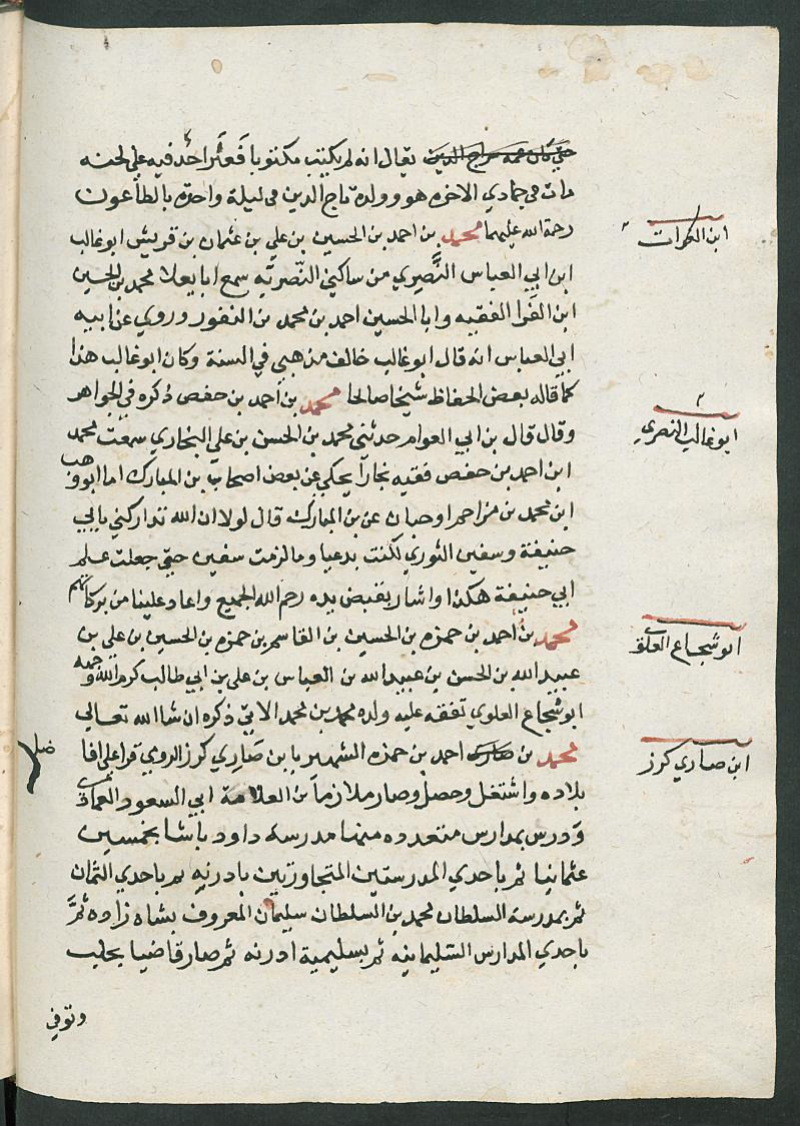 حتى كان عمه سراج الدين يقال انه لم يكتب مكتوبا فعثر احد فيه على لحنه
مات في جمادي الاخره هو وولده تاج الدين في ليلة واحده بالطاعون
رحمة الله عليهما محمد بن احمد بن الحسين بن علي بن عثمان بن قريش ابو غالب
ابن ابي العباس النصيري من ساكني النصرية سمع ابا يعلا محمد بن الحسين
ابن الفرا الفقيه وابا الحسين احمد بن محمد بن النقور وروي عن ابيه
ابي العباس انه قال ابو غالب خالف مذهبي في السنة وكان ابو غالب هذا
كما قاله بعض الحفاظ شيخا صالحا محمد بن احمد بن حفص ذكره في الجواهر
وقال قال بن ابي العوام حدثني محمد بن الحسن بن علي البخاري سمعت محمد
ابن احمد بن حفص فقيه بخارا يحكي عن بعض اصحاب بن المبارك اما ابو وهب
ابن محمد بن مزاحم او حبان عن بن المبارك قال لولا ان الله تداركني بابي
حنيفة وسفين الثوري لكنت بدعيا وما لزمت سفين حتى جعلت علم
ابي حنيفة هكذا واشار بقبض يده رحم الله الجميع واعاد علينا من بركاتهم
محمد بن احمد بن حمزه بن الحسين بن القاسم بن حمزه بن الحسين بن علي بن
عبيد الله بن الحسن بن عبيد الله بن العباس بن علي بن ابي طالب كرم الله وجهه
ابو شجاع العلوي تفقه عليه ولده محمد بن محمد الاتي ذكره ان شا الله تعالي
محمد بن احمد بن حمزه الشهير بابن صاري كرز الرومي قرا علي افا
ضل
بلاده واشتغل وحصل وصار ملازما من العلامة ابي السعود العمادي
ودرس بمدارس متعدده منها مدرسة داود باشا بخمسين
عثمانيا ثم باحدي المدرستين المتجاورتين بادرنه ثم باحدي الثمان
ثم بمدرسة السلطان محمد بن السلطان سليمان المعروف بشاه زاده ثم
باحدي المدارس السليمانيه ثم بسليمية ادرنه ثم صار قاضيا بحلب
وتوفي
ابو غالب النصري
ابو شجاع العلوي
ابن صاري كرز